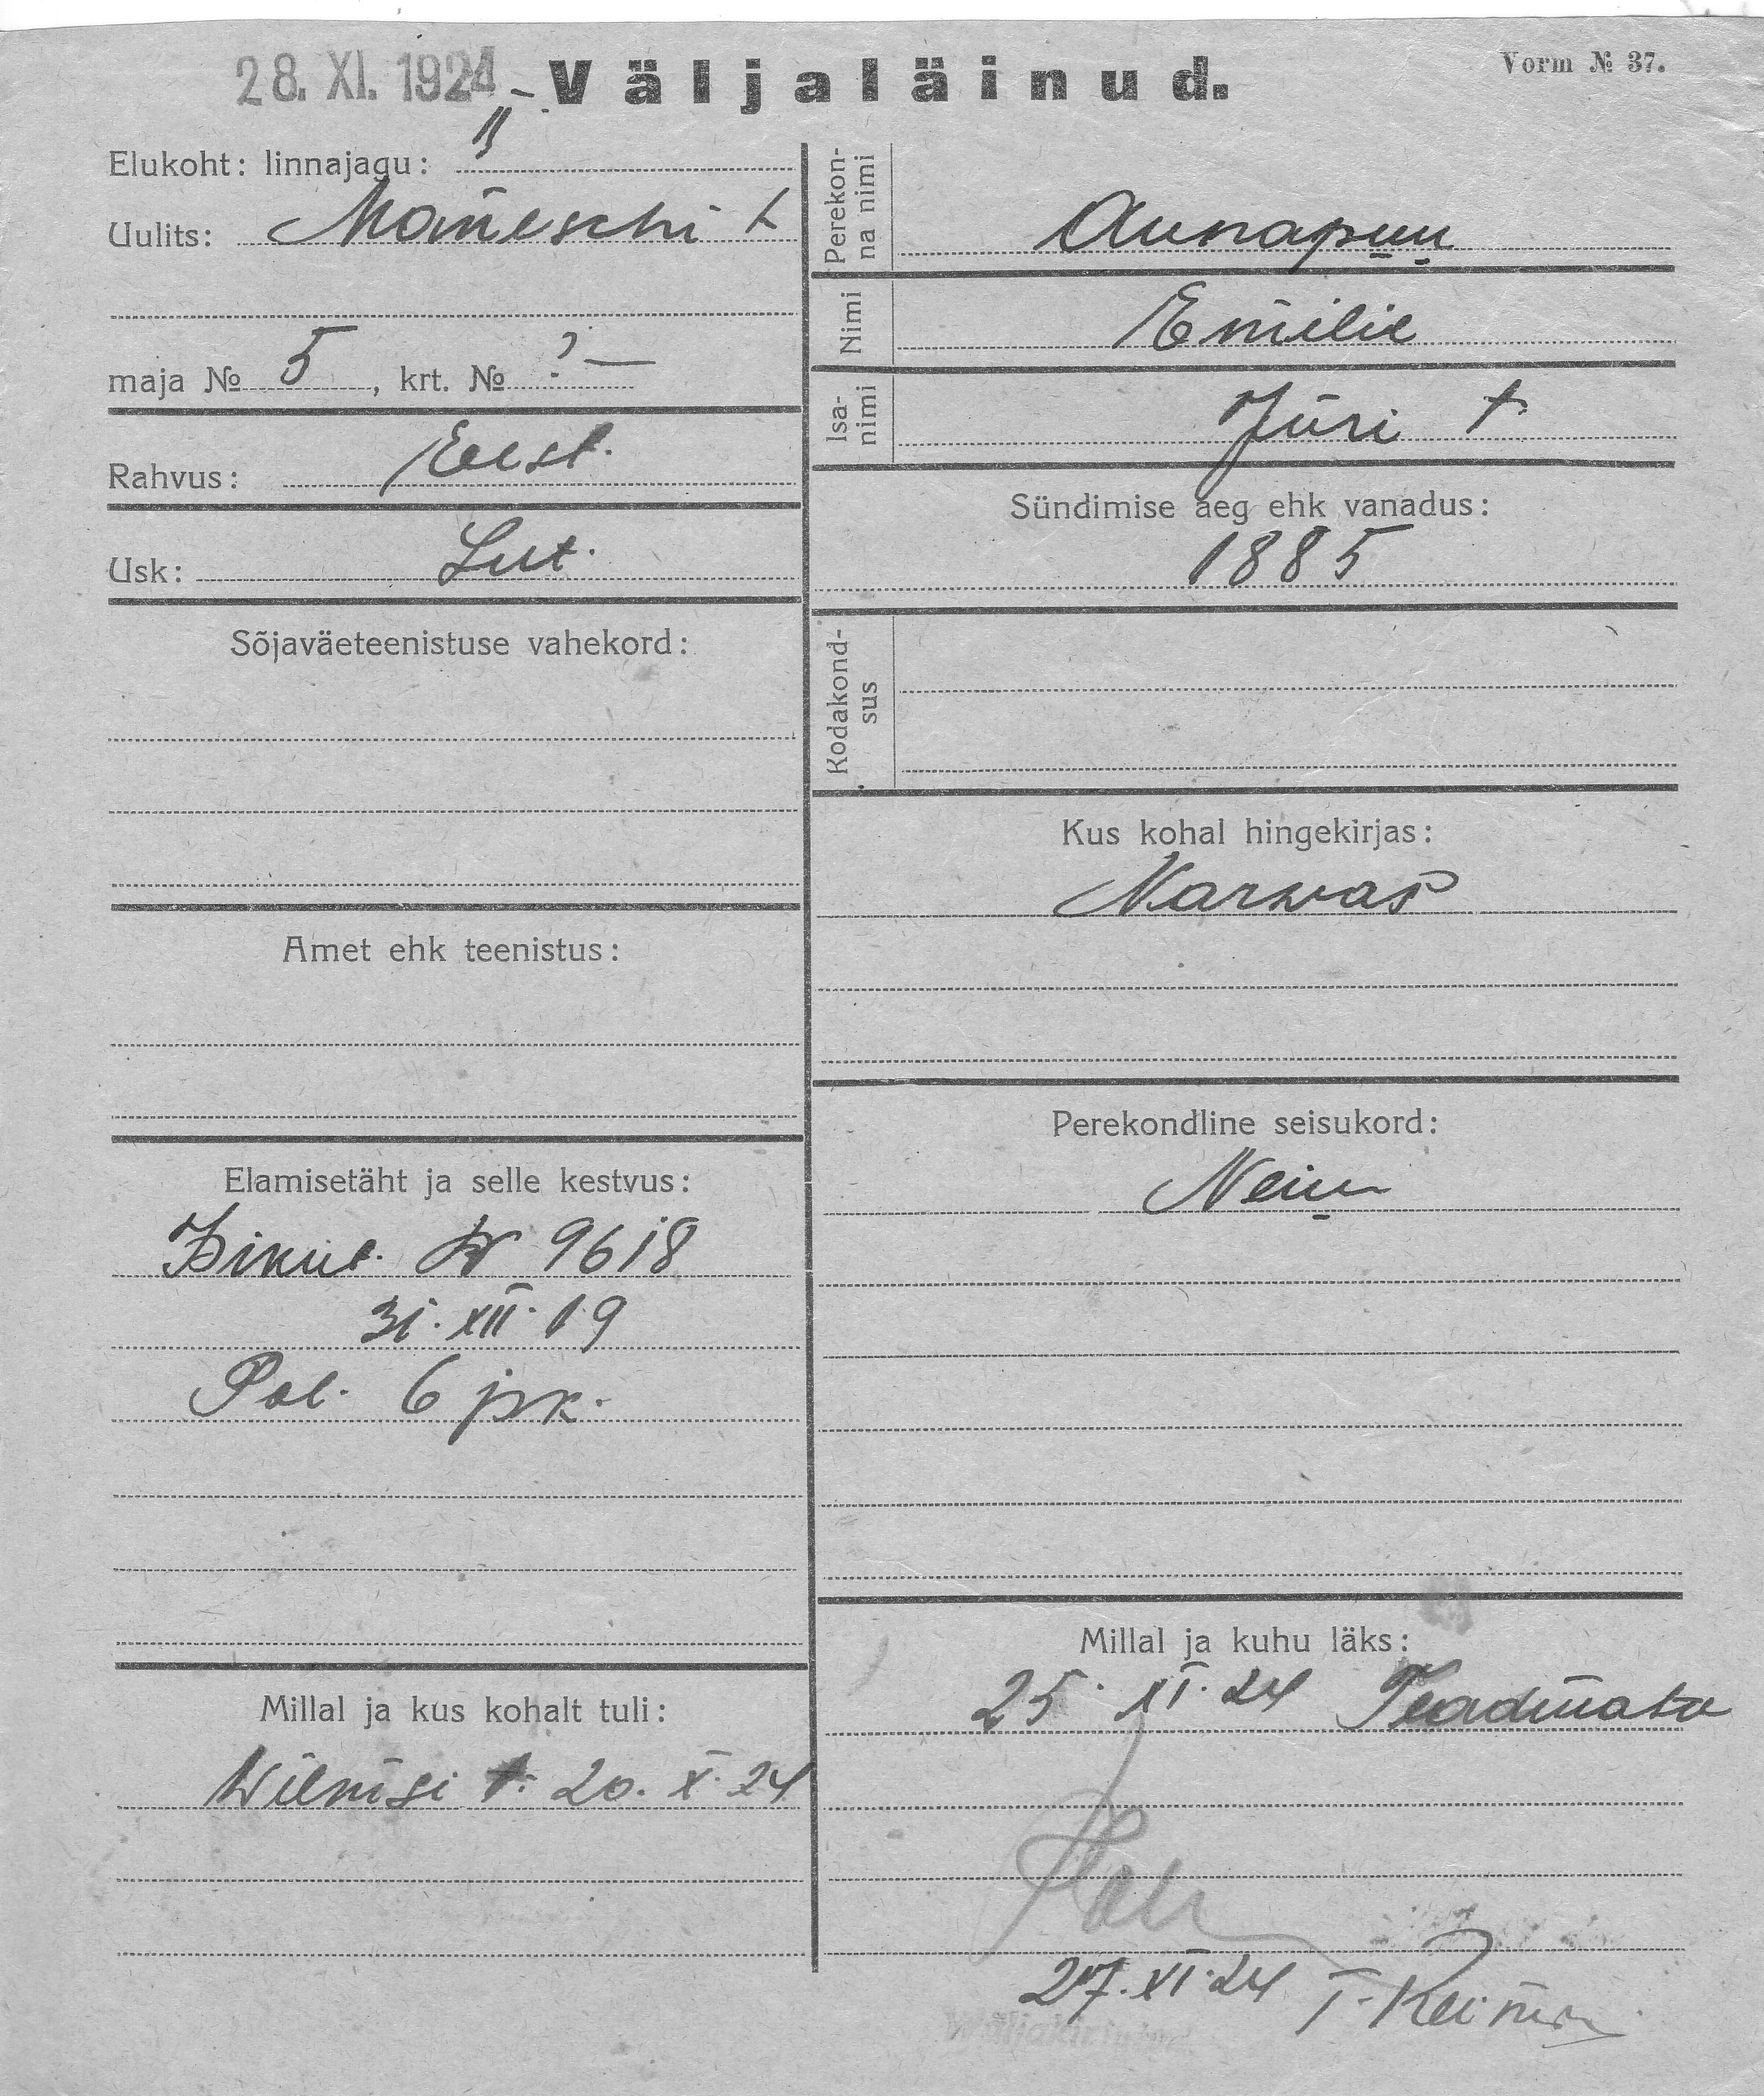 28. XI. 1924
Väljaläinud.
Vorm № 37.
Elukoht: linnajagu: II
Uulits: Maneschi t
maja № 5, krt. № ? —
Rahvus: Eest.
Usk: Lut.
Sõjaväeteenistuse vahekord:
Amet ehk teenistus:
Elamisetäht ja selle kestvus:
Isikut. N 9618
31. XII. 19
Pol. 6 jsk.
Millal ja kus kohalt tuli:
Wilmsi t. 20. X. 24
Perekon-
na nimi
Aunapuu
Nimi
Emilie
Isa-
nimi
Jüri †
Sündimise aeg ehk vanadus:
1885
Kodakond-
sus
Kus kohal hingekirjas:
Narvas
Perekondline seisukord:
Neiu
Millal ja kuhu läks:
25. XI. 24 Teadmata
27. XI. 24